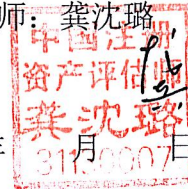 师：龚沈璐
中国注册
资产评估师
龚沈璐
月 日